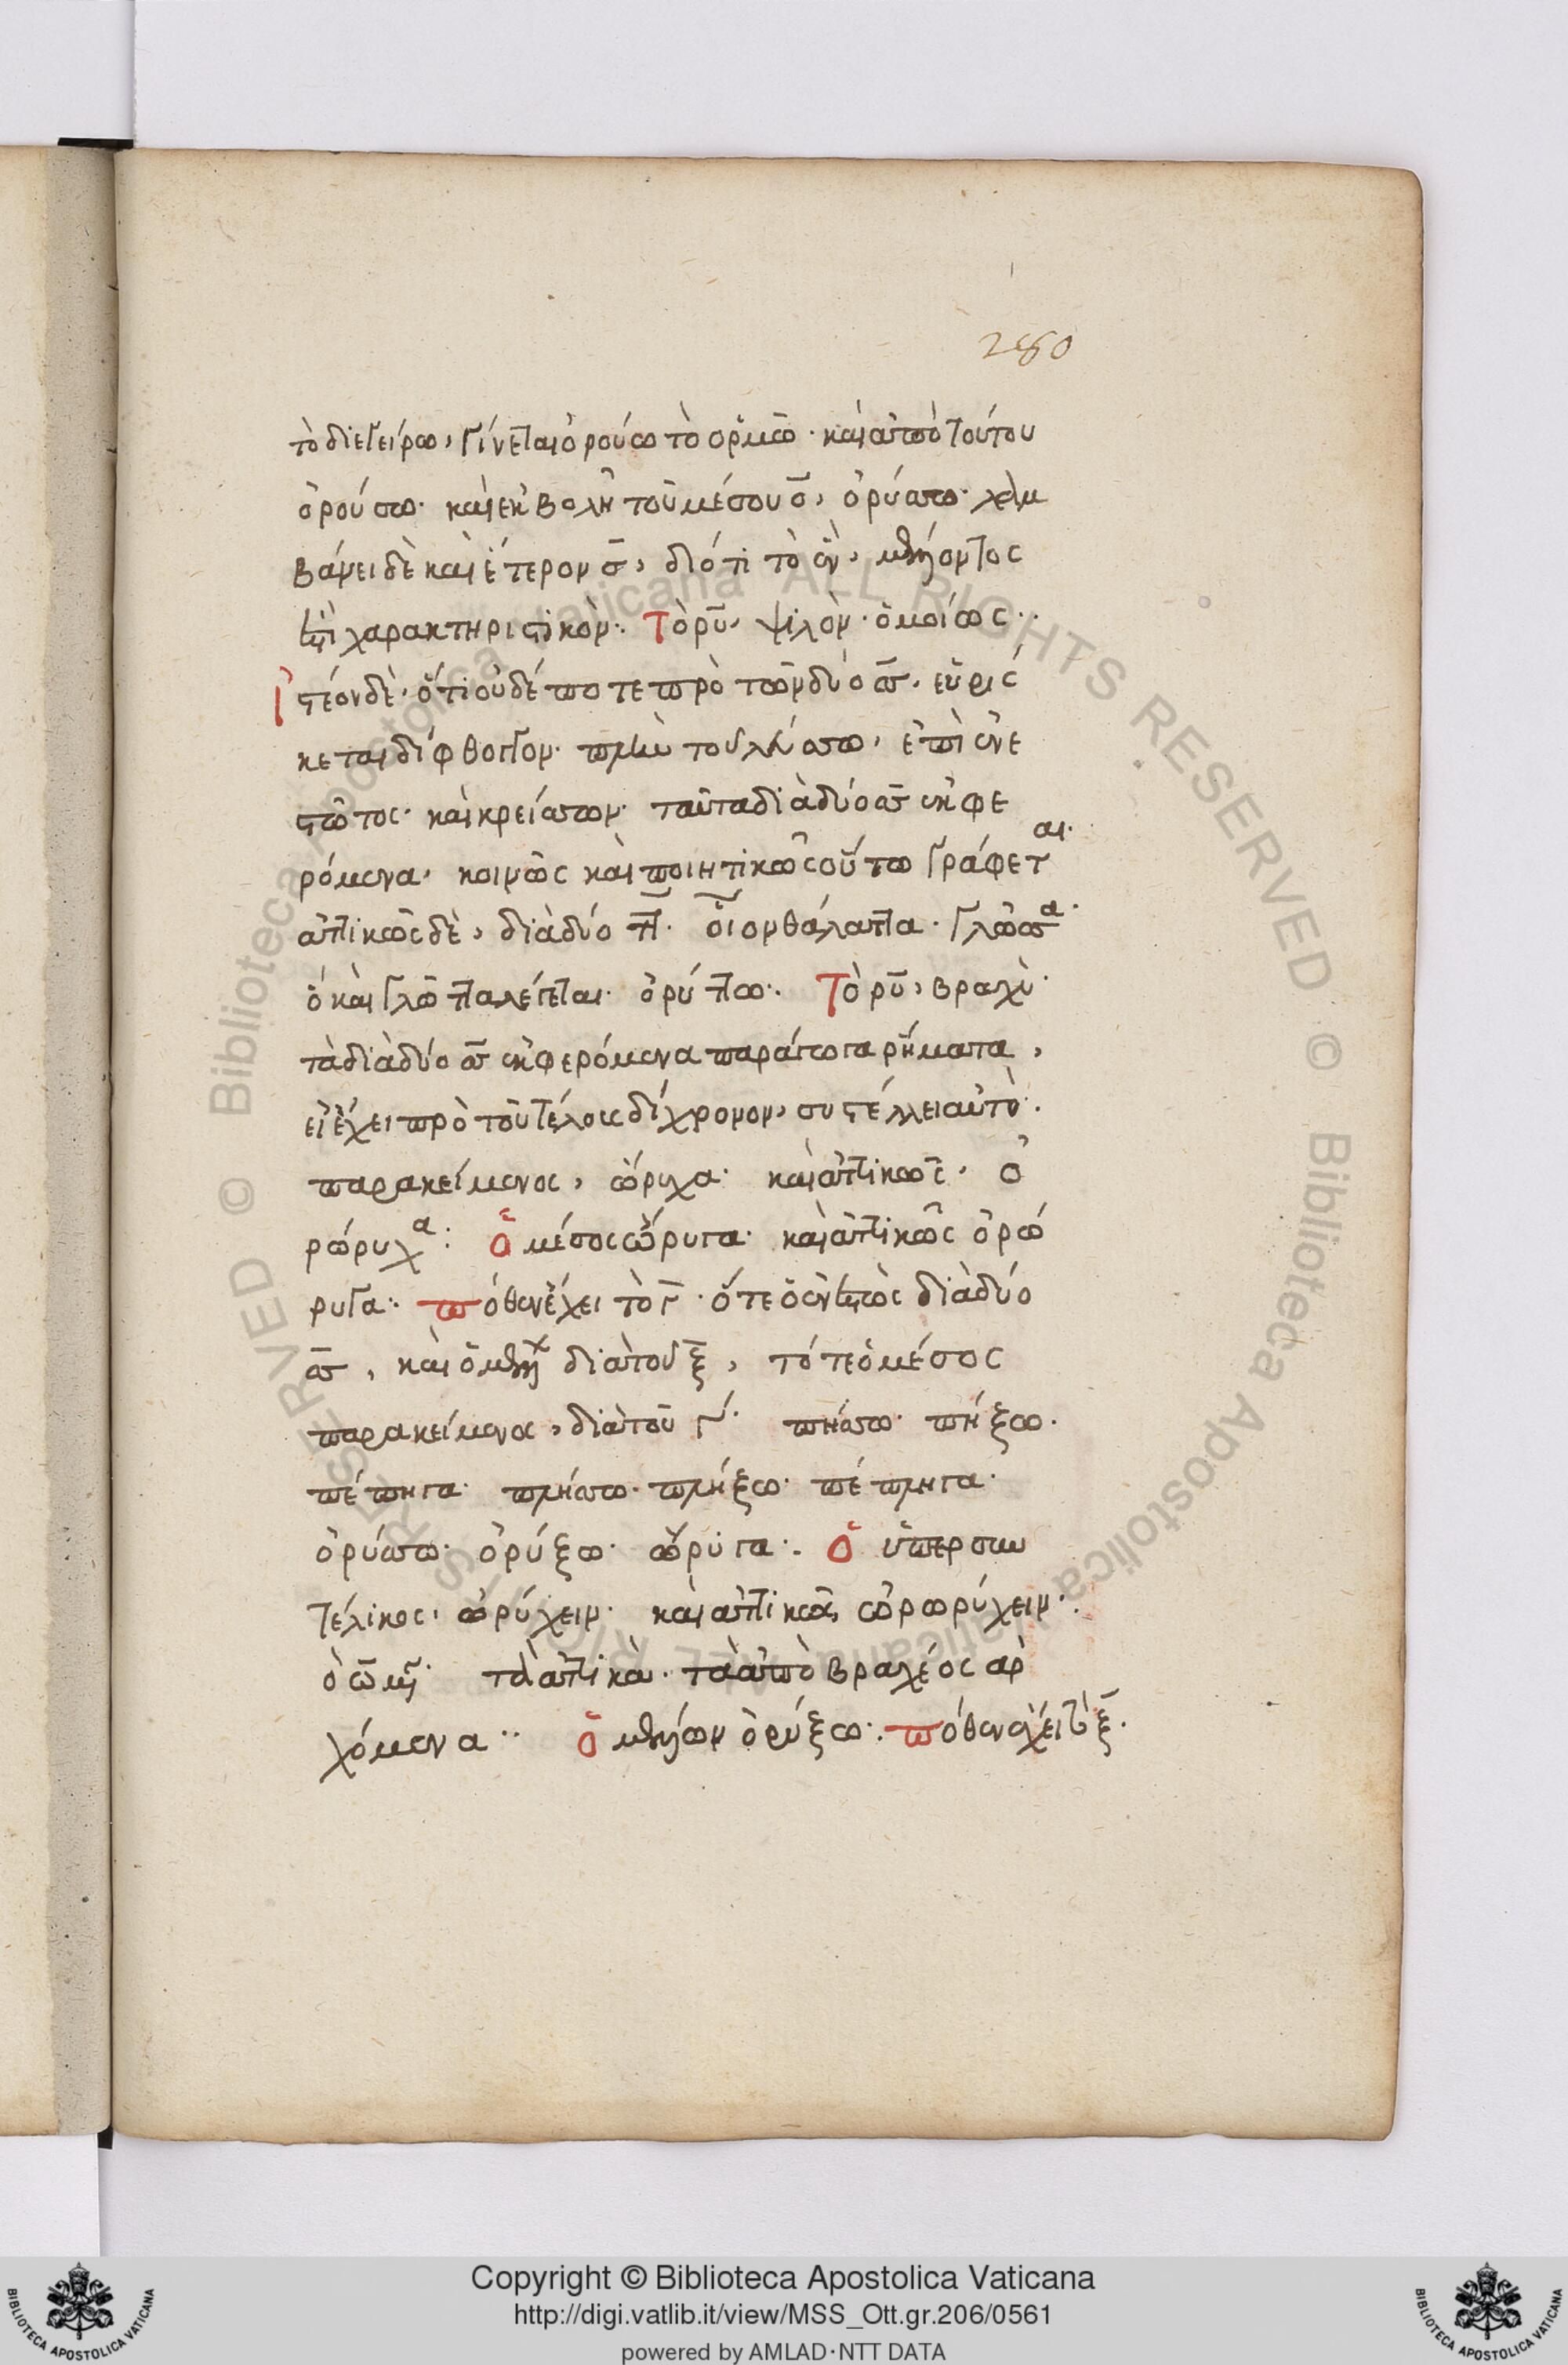 280
τὸ διεγείρω, γίνεται ὀρούω τὸ ὁρμῶ· καὶ ἀπὸ τούτου
ὀρούσσω· καὶ ἐκβολῆ τοῦ μέσου ο̄, ὀρύσσω· λαμ
βάνει δὲ καὶ ἕτερον σ̄, διότι τὸ ἓν, μέλλοντος
ἐστὶ χαρακτηριστικόν·. Τὸ ρῡ, ψιλὸν· ὁμοίως··
Ἰστέον δὲ· ὅτι οὐδέποτε πρὸ τῶν δύο σσ̄, εὑρίσ
κεται δίφθογγον· πλὴν τοῦ λεύσσω, ἐπὶ ἐνε
στῶτος· καὶ κρείσσων· ταῦτα διὰ δύο σσ̄ ἐκφε
ρόμενα, κοινῶς καὶ ποιητικῶς οὕτω γράφεται·
ἀττικῶς δὲ, διὰ δύο ττ̄· οἷον θάλαττα· γλῶσσα·
ὃ καὶ γλῶττα λέγεται· ὀρύττω·. Τὸ ρῡ, βραχὺ·
τὰ διὰ δύο σσ̄ ἐκφερόμενα παράγωγα ῥήματα,
εἰ ἔχει πρὸ τοῦ τέλους δίχρονον, συστέλλει αὐτὸ·
παρακείμενος, ὤρυχα· καὶ ἀττικῶς· ὀ
ρώρυχα: Ὁ μέσος ὤρυγα· καὶ ἀττικῶς ὀρώ
ρυγα·. πόθεν ἔχει τὸ γ̄· ὅτε ὁ ἐνεστὼς διὰ δύο
σσ̄, καὶ ὁ μέλλων διὰ τοῦ ξ̄, τότε ὁ μέσος
παρακείμενος, διὰ τοῦ γ̄· πήσσω· πήξω·
πέπηγα· πλήσσω· πλήξω· πέπληγα·
ὀρύσσω· ὀρύξω· ὤρυγα·. Ὁ ὑπερσυν
τέλικος, ὠρύχειν· καὶ ἀττικῶς, ὠρωρύχειν·
ὁ ω̄ μῆ· τὰ ἀττικὰ· τὰ ἀπὸ βραχέος ἀρ
χόμενα·· Ὁ μέλλων ὀρύξω·. πόθεν ἔχει τὸ ξ̄·
Copyright © Biblioteca Apostolica Vaticana
http://digi.vatlib.it/view/MSS_Ott.gr.206/0561
powered by AMLAD·NTT DATA